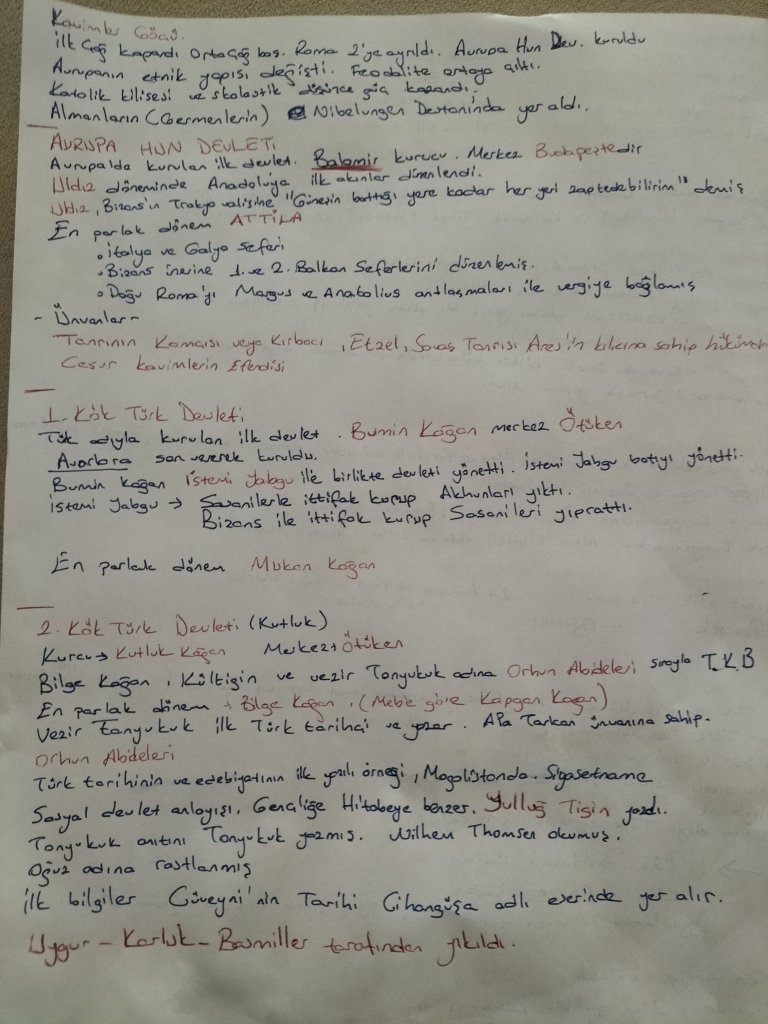 Kavimler Göçü
İlk Çağ kapandı Orta Çağ baş. Roma 2'ye ayrıldı. Avrupa Hun Dev. kuruldu
Avrupanın etnik yapısı değişti. Feodalite ortaya çıktı.
Katolik kilisesi ve skolastik düşünce güç kazandı.
Almanların (Germenlerin) Nibelungen Destanı'nda yer aldı.
AVRUPA HUN DEVLETİ
Avrupa'da kurulan ilk devlet. Balamir kurucu. Merkez Budapeştedir
Uldız döneminde Anadolu'ya ilk akınlar düzenlendi.
Uldız, Bizans'ın Trakya valisine "Güneşin battığı yere kadar her yeri zaptedebilirim" demiş
En parlak dönem ATTİLA
• İtalya ve Galya Seferi
• Bizans üzerine 1. ve 2. Balkan Seferlerini düzenlemiş.
• Doğu Roma'yı Margus ve Anatolius antlaşmaları ile vergiye bağlamış
- Ünvanlar -
Tanrının Kamçısı veya Kırbacı, Etzel, Savaş Tanrısı Ares'in kılıcına sahip hüküm
Cesur kavimlerin Efendisi
1. Kök Türk Devleti
Türk adıyla kurulan ilk devlet. Bumin Kağan merkez Ötüken
Avarlara son vererek kuruldu.
Bumin Kağan İstemi Yabgu ile birlikte devleti yönetti. İstemi Yabgu batıyı yönetti.
İstemi Yabgu → Sasanilerle ittifak kurup Akhunları yıktı.
Bizans ile ittifak kurup Sasanileri yıprattı.
En parlak dönem Mukan Kağan
2. Kök Türk Devleti (Kutluk)
Kurcu → Kutluk Kağan Merkez → Ötüken
Bilge Kağan, Kültigin ve vezir Tonyukuk adına Orhun Abideleri sırayla T.K.B
En parlak dönem → Bilge Kağan, (Meb'e göre Kapgan Kağan)
Vezir Tonyukuk ilk Türk tarihçi ve yazar. Apa Tarkan ünvanına sahip.
Orhun Abideleri
Türk tarihinin ve edebiyatının ilk yazılı örneği, Mogolistanda. Siyasetname
Sosyal devlet anlayışı. Gençliğe Hitabeye benzer. Yulluğ Tigin yazdı.
Tonyukuk anıtını Tonyukuk yazmış. Wilhem Thomsen okumuş.
Oğuz adına rastlanmış
İlk bilgiler Cüveyni'nin Tarihi Cihangüşa adlı eserinde yer alır.
Uygur - Karluk - Basmiller tarafından yıkıldı.